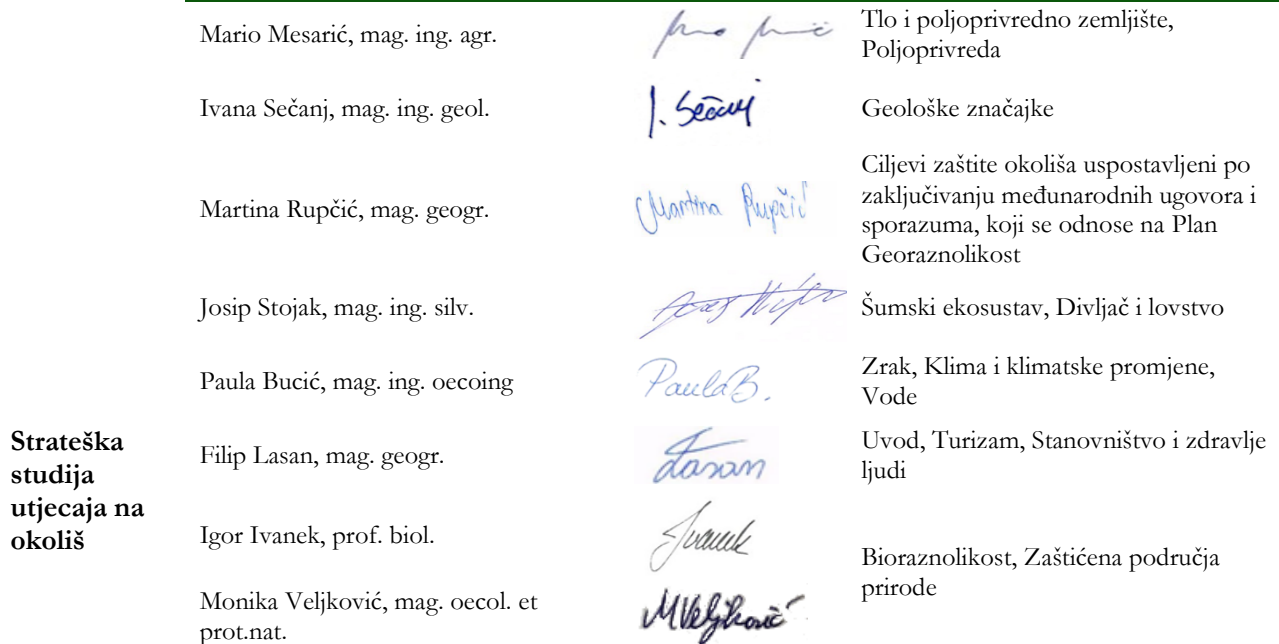 Mario Mesarić, mag. ing. agr.
Tlo i poljoprivredno zemljište,
Poljoprivreda
Ivana Sečanj, mag. ing. geol.
I. Sečanj
Geološke značajke
Martina Rupčić, mag. geogr.
Martina Rupčić
Ciljevi zaštite okoliša uspostavljeni po
zaključivanju međunarodnih ugovora i
sporazuma, koji se odnose na Plan
Georaznolikost
Josip Stojak, mag. ing. silv.
Šumski ekosustav, Divljač i lovstvo
Paula Bucić, mag. ing. oecoing
PaulaB.
Zrak, Klima i klimatske promjene,
Vode
Strateška
studija
utjecaja na
okoliš
Filip Lasan, mag. geogr.
Lasan
Uvod, Turizam, Stanovništvo i zdravlje
ljudi
Igor Ivanek, prof. biol.
Ivanek
Bioraznolikost, Zaštićena područja
prirode
Monika Veljković, mag. oecol. et
prot.nat.
MVeljković